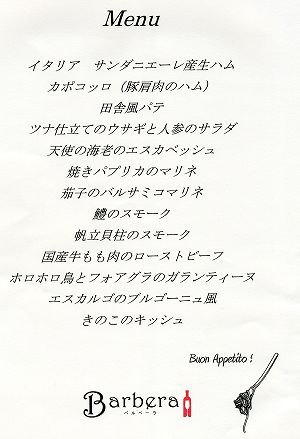 Menu
イタリア　サンダニエーレ産生ハム
カポコッロ（豚肩肉のハム）
田舎風パテ
ツナ仕立てのウサギと人参のサラダ
天使の海老のエスカベッシュ
焼きパプリカのマリネ
茄子のバルサミコマリネ
鱧のスモーク
帆立貝柱のスモーク
国産牛もも肉のローストビーフ
ホロホロ鳥とフォアグラのガランティーヌ
エスカルゴのブルゴーニュ風
きのこのキッシュ
Buon Appetito !
Barbera
バルベーラ